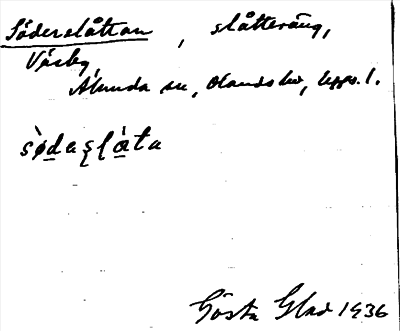 Söderslåttan, slåtteräng,
Väsby,
Alunda sn, Olands hd, Upps. l.
sø̀daʂḷà̲ta
Gösta Glad 1936